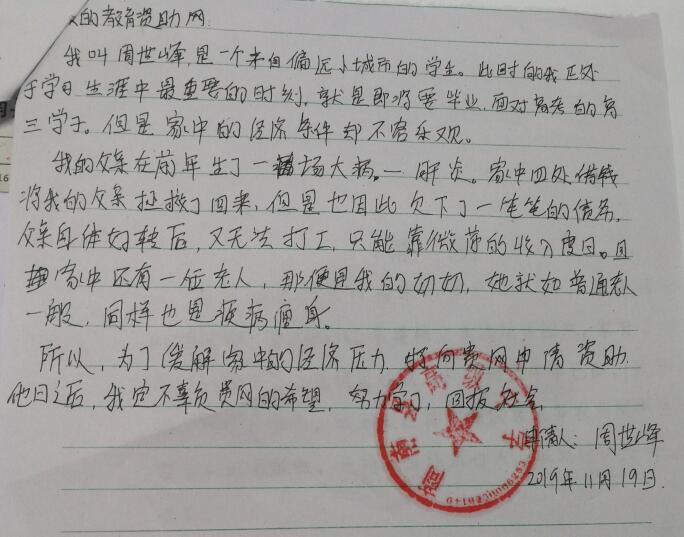 的教育资助网
我叫周世峰,是一个来自偏远小城市的学生。此时的我正处
于学习生涯中最重要的时刻,就是即将要毕业,面对高考的高
三学子。但是家中的经济条件却不容乐观。
我的父亲在前年生了一场大病。一肝炎。家中四处借钱
将我的父亲拯救了回来,但是也因此欠下了一笔笔的债务。
父亲身体好转后,又无法打工,只能靠微薄的收入度日。且
家中还有一位老人,那便是我的奶奶,她就如普通老人
一般,同样也是疾病缠身。
所以,为了缓解家中的经济压力,特向贵网申请资助.
他日之后,我定不辜负贵网的希望,努力学习,回报社会.
申请人:周世峰
2019年11月19日.